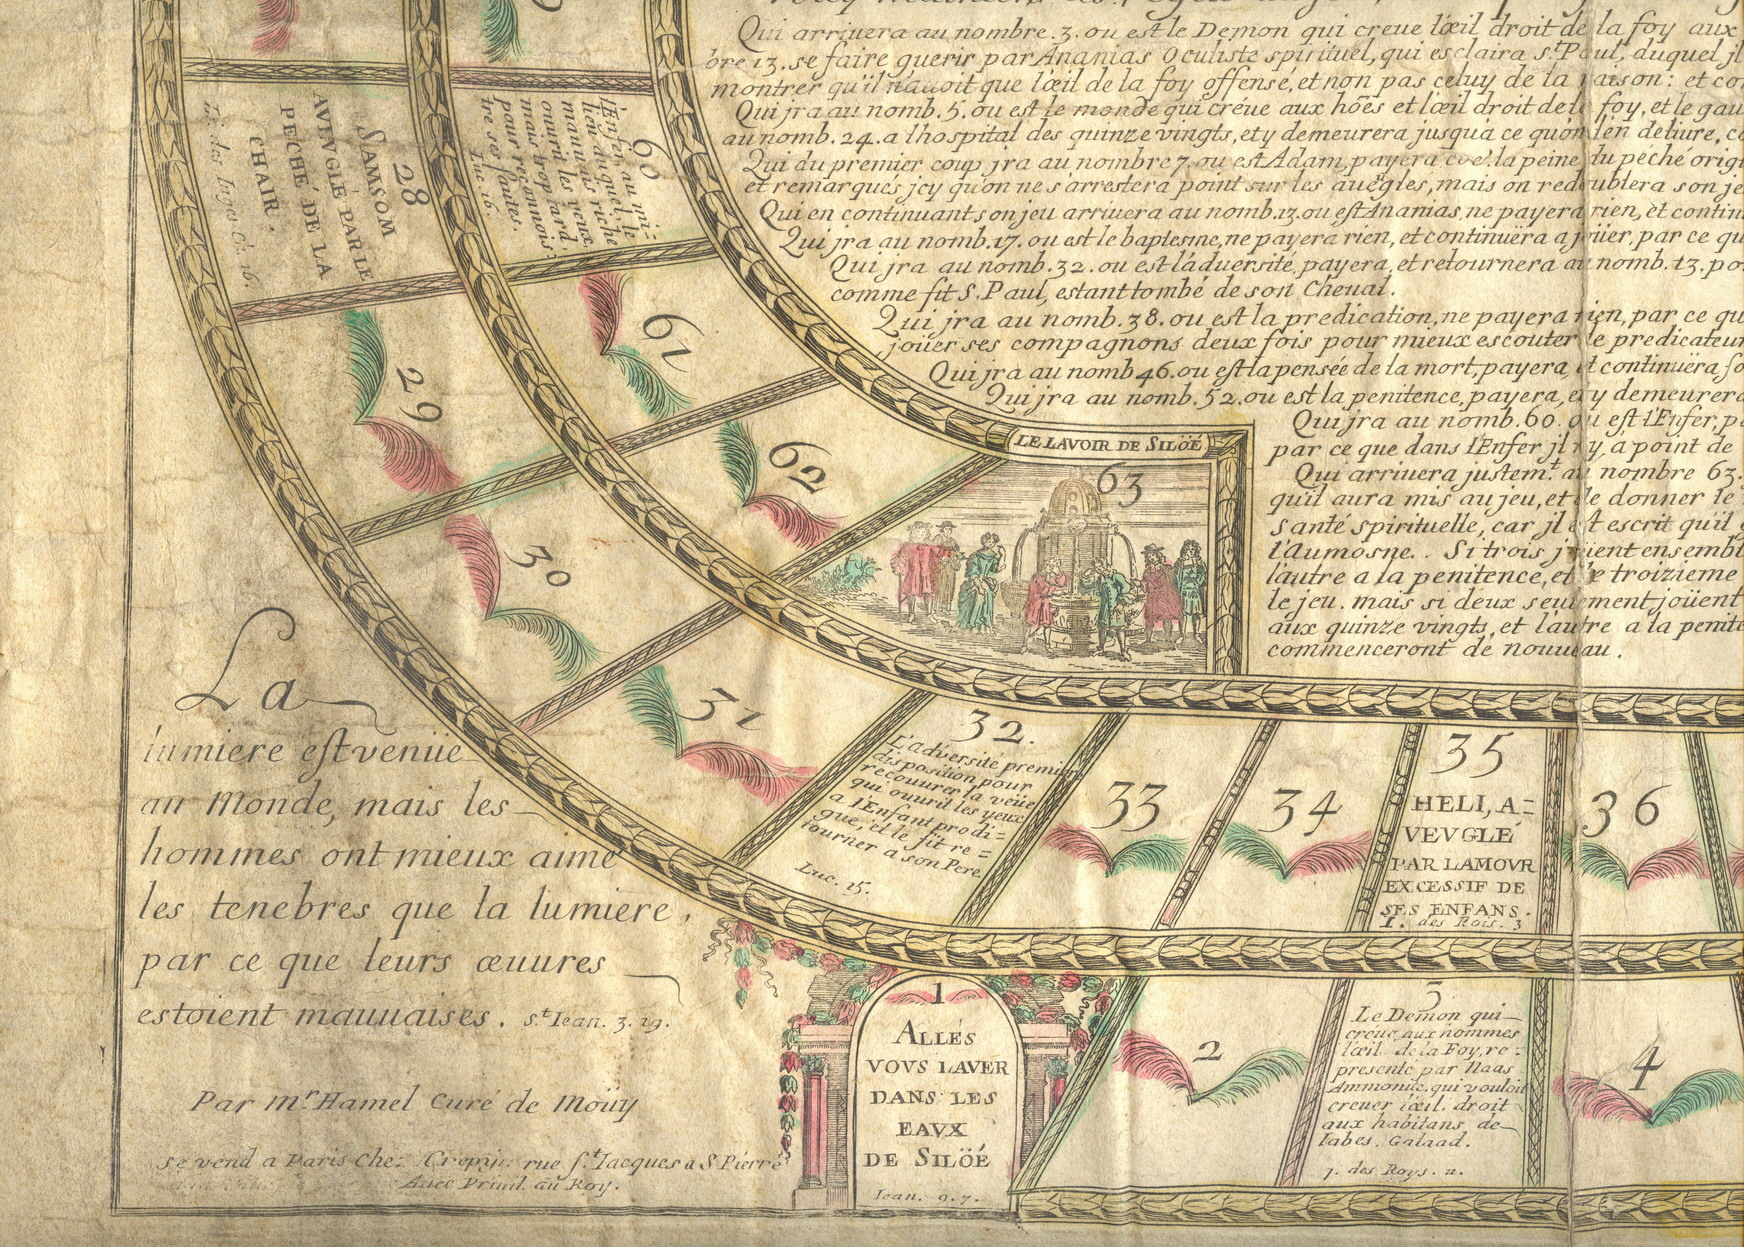 Qui arriuera au nombre.3.ou est le Demon qui creue lœil droit de la foy aux
bre 13.se faire guerir par Ananias Oculiste spirituel, qui esclaira s.t Paul, duquel jl
montrer qu'il nauoit que lœil de la foy offensé, et non pas celuy de la raison: et co
Qui jra au nomb.5.ou est le monde qui créue aux hões et lœil droit de le foy, et le gau
au nomb.24.a lhospital des quinze vingts, et y demeurera jusqua ce quon l'en deliure, c
Qui du premier coup jra au nombre 7.ou est Adam, payera la peine du péché orig
et remarqués jcy qu'on ne s'arrestera point sur les auëgles, mais on redoublera son je
Qui en continuant son jeu arriuera au nomb.13.ou est Ananias, ne payera rien, et contin
Qui jra au nomb.17.ou est le baptesme, ne payera rien, et continuëra a joüer, par ce qu
Qui jra au nomb.32.ou est láduersité, payera, et retournera au nomb.13.po
comme fit S.Paul, estant tombé de son Cheual.
Qui jra au nomb.38.ou est la predication, ne payera rien, par ce qu
jouer ses compagnons deux fois pour mieux escouter le predicateur
Qui jra au nomb 46.ou est la pensée de la mort, payera, et continuëra so
Qui jra au nomb.52.ou est la penitence, payera, et y demeurera
Qui jra au nomb.60.ou est lEnfer, p
par ce que dans lEnfer jl ny, a point de
Qui arriuera justem.t au nombre 63.
qu'il aura mis au jeu, et de donner le
santé spirituelle, car jl est escrit qu'il
l'Aumosne. Si trois joüient ensembl
lautre a la penitence, et le troizieme
le jeu. mais si deux seulement joüent
aux quinze vingts, et lautre a la penite
commenceront de nouueau.
28
SAMSOM
AVEVGLÉ PAR LE
PECHÉ DE LA
CHAIR.
60
lEnfer, au mi:
lieu duquel, le
mauuais riche
ouurit les yeux
mais trop tard
pour reconnois:
tre ses fautes.
Luc 16.
29
61
30
62
LE LAVOIR DE SILÖÉ
63
31
32.
L'Adversité premier
disposition pour
recouurer la veüe
qui ouurit les yeux
a lEnfant prodi=
gue, et le fit re=
tourner a son Pere.
Luc. 15.
33
34
35
HELI, A=
VEVGLÉ
PAR LAMOVR
EXCESSIF DE
SES ENFANS.
1. des Rois. 3
36
La
lumiere est venüe
au Monde, mais les
hommes ont mieux aimé
les tenebres que la lumiere,
par ce que leurs œuures
estoient mauuaises. s.t Iean. 3. 19.
Par m.r Hamel Curé de Moüy
se vend a Paris Chez Crepy rue s.t Iacques a S Pierre
Auec Priuil. du Roy.
1
ALLÉS
VOVS LAVER
DANS LES
EAVX
DE SILÖÉ
Iean. 9. 7.
2
3
Le Démon qui
creue aux hommes
l'œil de la Foy, re:
presenté par Naas
Ammonite, qui vouloit
creuer lœil droit
aux habitans de
Iabes. Galaad.
1. des Roys. 11.
4